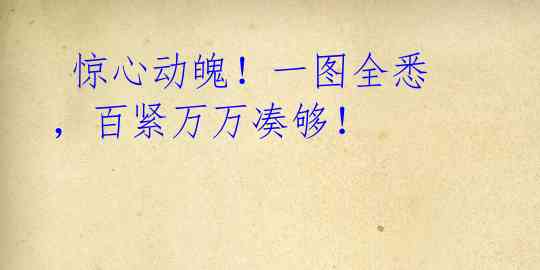 惊心动魄！一图全悉
，百紧万万凑够！